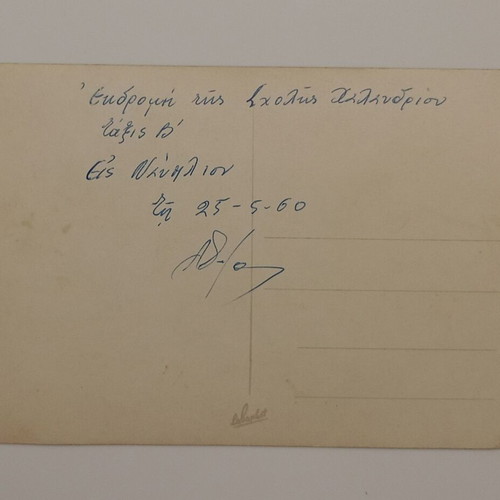 Ἐκδρομή τῆς Σχολῆς Χελενδρίου
τάξις Β'
Εἰς Ναύπλιον
τῇ 25-5-60